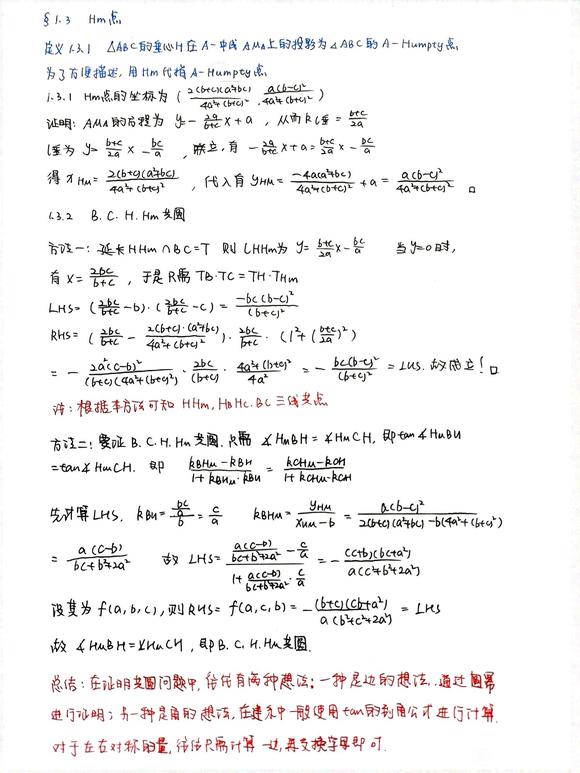 §1.3 Hm点
定义1.3.1 △ABC的垂心H在A-中线AMA上的投影为△ABC的A-Humpty点,
为了方便描述,用Hm代指A-Humpty点.
1.3.1 Hm点的坐标为 (2(b+c)(a²+bc)/(4a²+(b+c)²), a(b-c)²/(4a²+(b+c)²))
证明: AMA的方程为 y=-2a/(b+c) x+a, 从而k l垂=(b+c)/2a
l垂为 y=(b+c)/2a x-bc/a, 联立,有 -2a/(b+c) x+a=(b+c)/2a x-bc/a
得 xHm=2(b+c)(a²+bc)/(4a²+(b+c)²), 代入有 yHm=-4a(a²+bc)/(4a²+(b+c)²)+a=a(b-c)²/(4a²+(b+c)²) □
1.3.2 B.C.H.Hm共圆
方法一:延长HHm∩BC=T 则LHHm为 y=(b+c)/2a x-bc/a 当y=0时,
有 x=2bc/(b+c), 于是只需 TB·TC=TH·THm
LHS=(2bc/(b+c)-b)·(2bc/(b+c)-c)=-bc(b-c)²/(b+c)²
RHS=(2bc/(b+c)-2(b+c)·(a²+bc)/(4a²+(b+c)²))·2bc/(b+c)·(1²+((b+c)/2a)²)
=-2a²(c-b)²/((b+c)(4a²+(b+c)²))·2bc/(b+c)·(4a²+(b+c)²)/4a²=-bc(b-c)²/(b+c)²=LHS. 故成立! □
注:根据本方法可知 HHm, HBHC, BC三线共点
方法二:要证B.C.H.Hm共圆.只需 ∡HmBH=∡HmCH, 即tan∡HmBH
=tan∡HmCH. 即 (kBHm-kBH)/(1+kBHm·kBH)=(kCHm-kCH)/(1+kCHm·kCH)
先计算LHS. kBH=(bc/a)/b=c/a kBHm=yHm/(xHm-b)=a(b-c)²/(2(b+c)(a²+bc)-b(4a²+(b+c)²))
=a(c-b)/(bc+b²+2a²) 故 LHS=(a(c-b)/(bc+b²+2a²)-c/a)/(1+a(c-b)/(bc+b²+2a²)·c/a)=-(c+b)(bc+a²)/(a(c²+b²+2a²))
设其为f(a,b,c), 则RHS=f(a,c,b)=-(b+c)(cb+a²)/(a(b²+c²+2a²))=LHS
故 ∡HmBH=∡HmCH, 即B.C.H.Hm共圆.
总结:在证明共圆问题中,往往有两种想法:一种是边的想法,通过圆幂
进行证明;另一种是角的想法,在建系中一般使用tan的到角公式进行计算.
对于左右对称的量,往往只需计算一边,再交换字母即可.